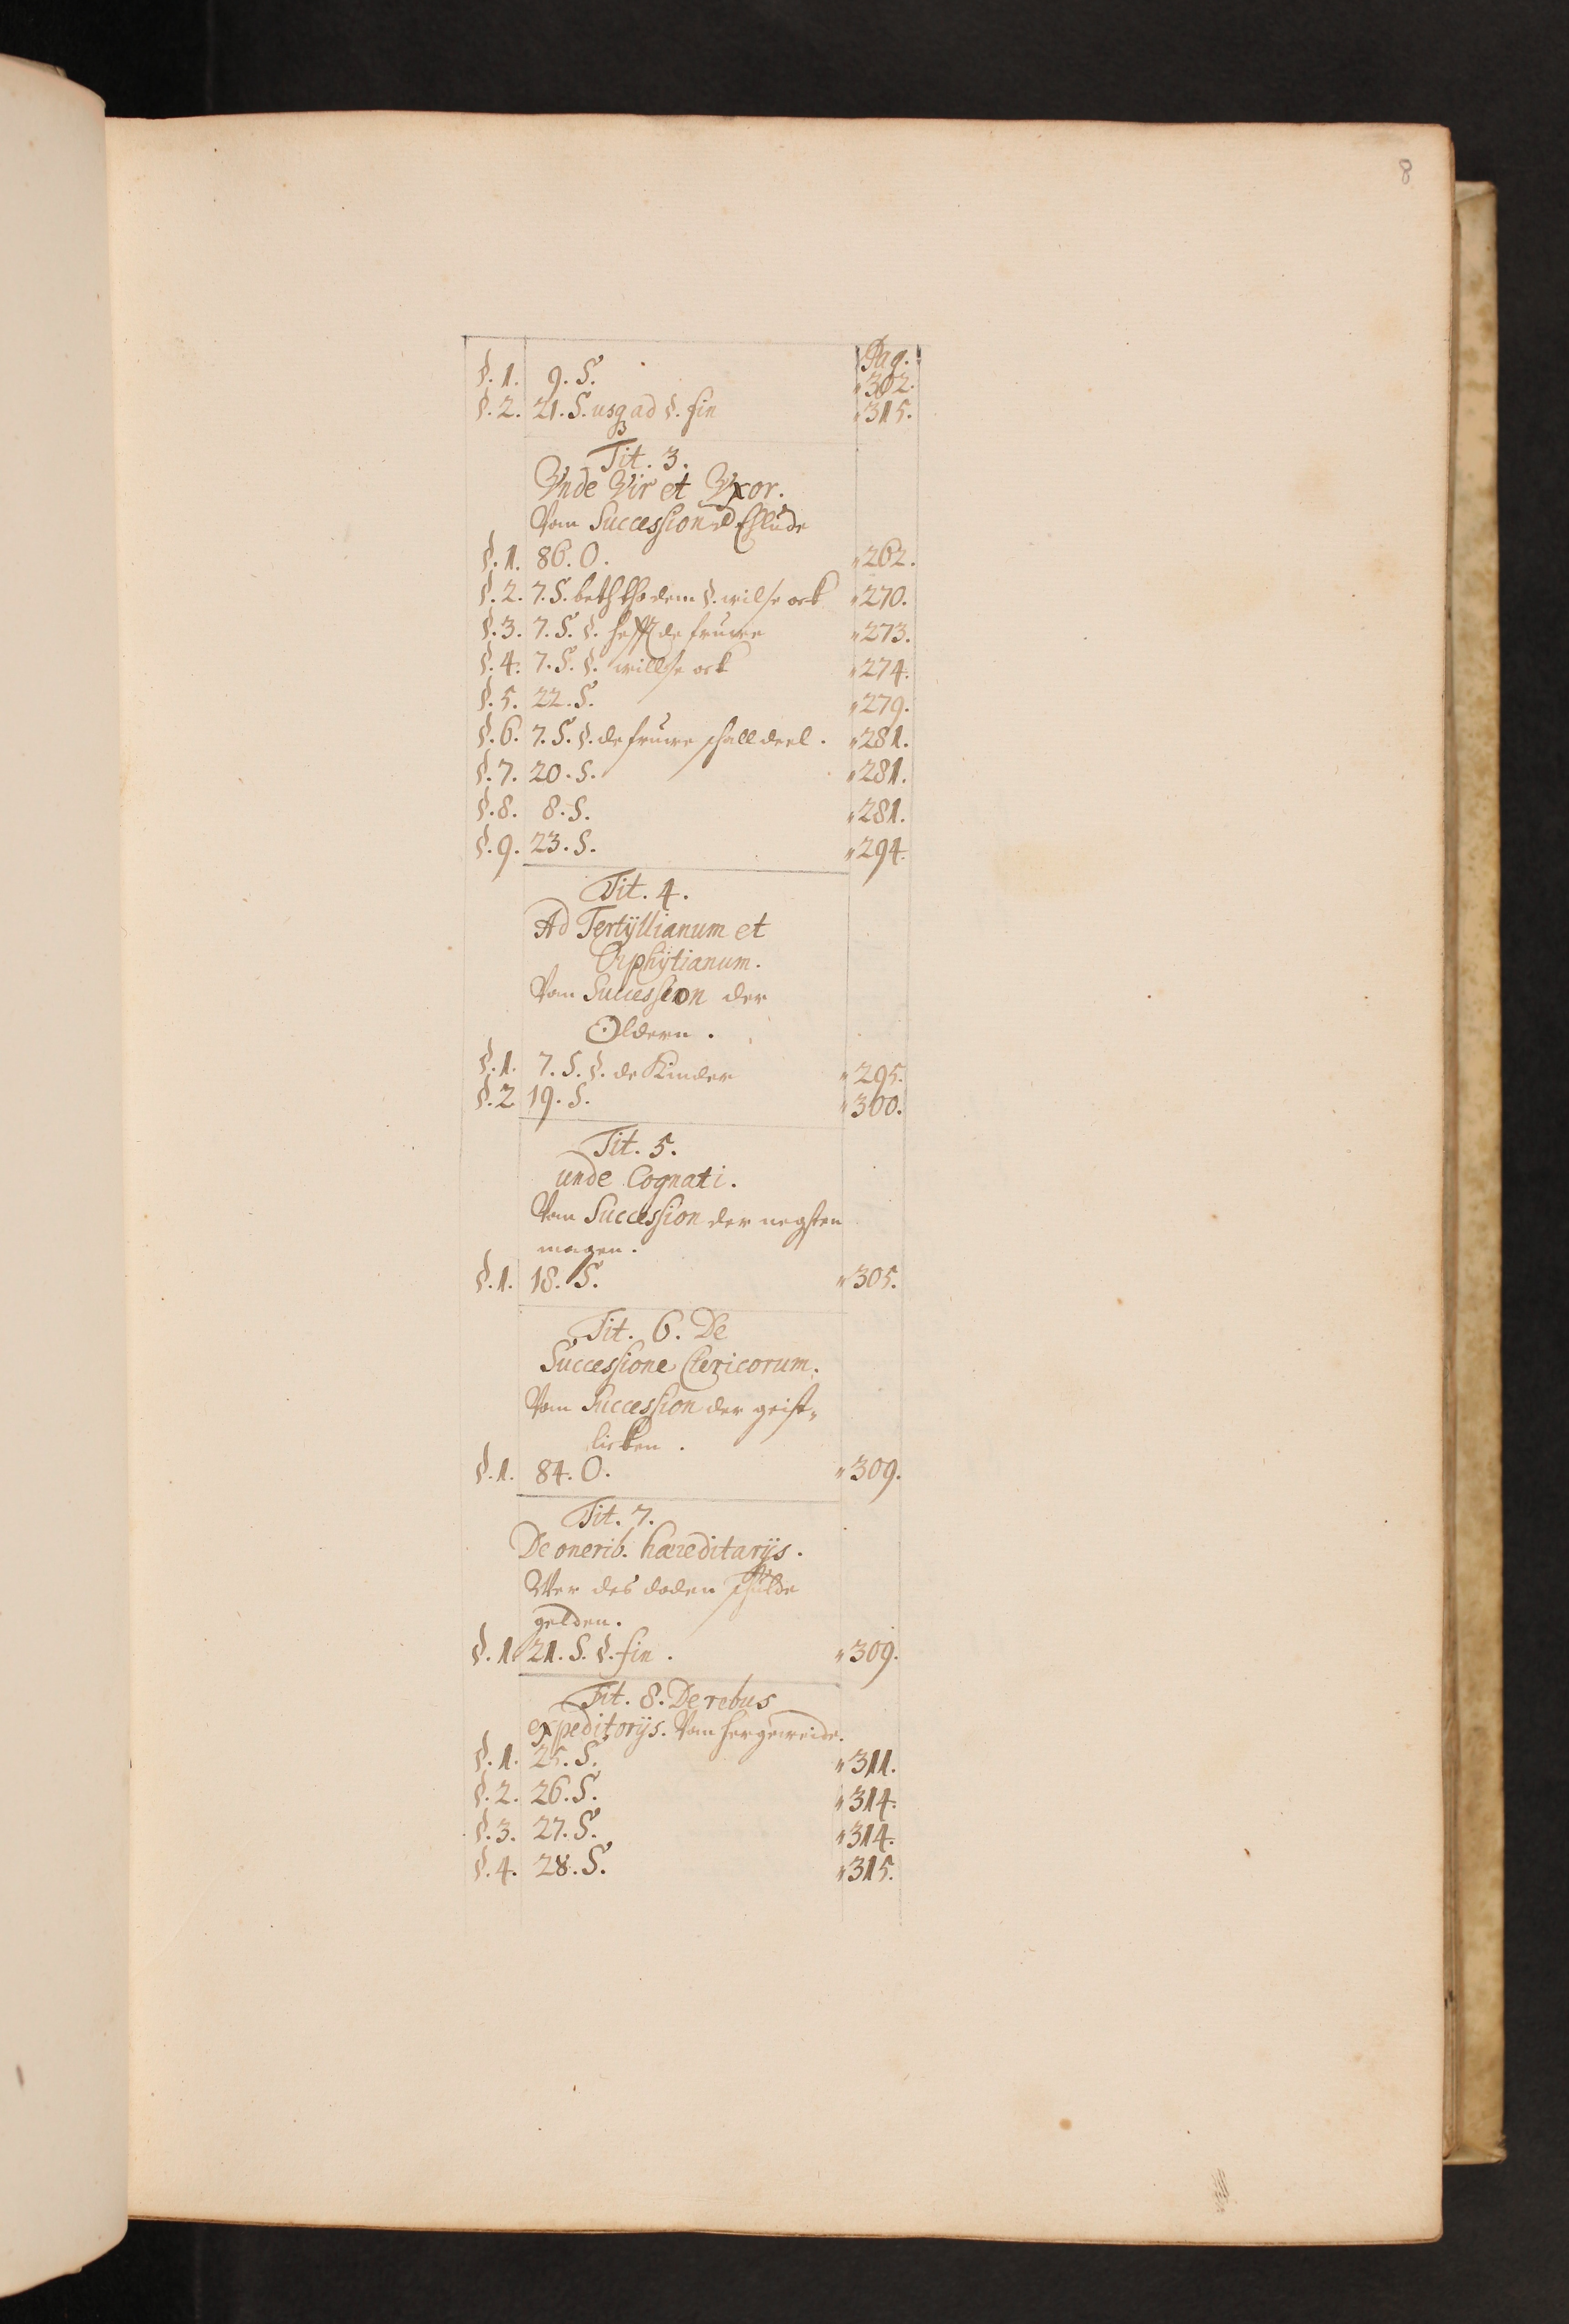 8
Pag.
§. 1. 9. S. 302.
§. 2. 21. S. usq ad §. fin 315.
Tit. 3.
Vnde Vir et Vxor.
Van Succession d Ehlüde
§. 1. 86. O. 262.
§. 2. 7. S. beth tho dem §. wil se ock 270.
§. 3. 7. S. §. hefft de fruwe 273.
§. 4. 7. S. §. will se ock 274.
§. 5. 22. S. 279.
§. 6. 7. S. §. de fruwe schall deel. 281.
§. 7. 20. S. 281.
§. 8. 8. S. 281.
§. 9. 23. S. 294.
Tit. 4.
Ad Tertÿllianum et
Orphÿtianum.
Van Succession der
Oldern.
§. 1. 7. S. §. de Kinder 295.
§. 2 19. S. 300.
Tit. 5.
unde Cognati.
Van Succession der negsten
magen.
§. 1. 18. S. 305.
Tit. 6. De
Successione Clericorum.
Van Succession der geist-
licken.
§. 1. 84. O. 309.
Tit. 7.
De onerib. hæreditarÿs.
Wer des doden schulde
gelden.
§. 1. 21. S. §. fin. 309.
Tit. 8. De rebus
expeditorÿs. Van hergeweide.
§. 1. 25. S. 311.
§. 2. 26. S. 314.
§. 3. 27. S. 314.
§. 4. 28. S. 315.